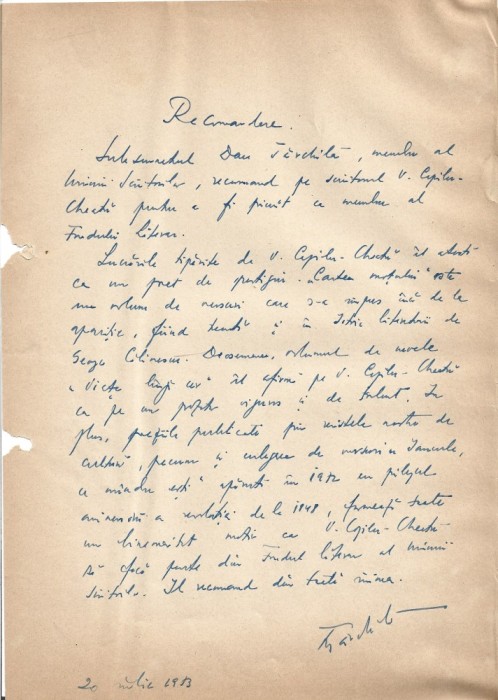 Recomandare.
Subsemnatul Dan Tărchilă, membru al
Uniunii Scriitorilor, recomand pe scriitorul V. Copilu-
Cheatră pentru a fi primit ca membru al
Fondului literar.
Lucrările tipărite de V. Copilu-Cheatră îl atestă
ca un poet de prestigiu. „Cartea moțului" este
un volum de versuri care s-a impus încă de la
apariție, fiind tentă și în Istoria literaturii de
George Călinescu. Deasemenea, volumul de nuvele
„Viața lângă cer" îl afirmă pe V. Copilu-Cheatră
ca pe un prozator viguros și de talent. În
plus, poeziile publicate prin revistele noastre de
cultură, precum și culegerea de versuri „Iancule,
ce mândru ești" apărută în 1972 cu prilejul
aniversării a revoluției de la 1848, formează toate
un binemeritat motiv ca V. Copilu-Cheatră
să facă parte din Fondul literar al Uniunii
Scriitorilor. Îl recomand din toată inima.
Tărchilă
20 iulie 1983